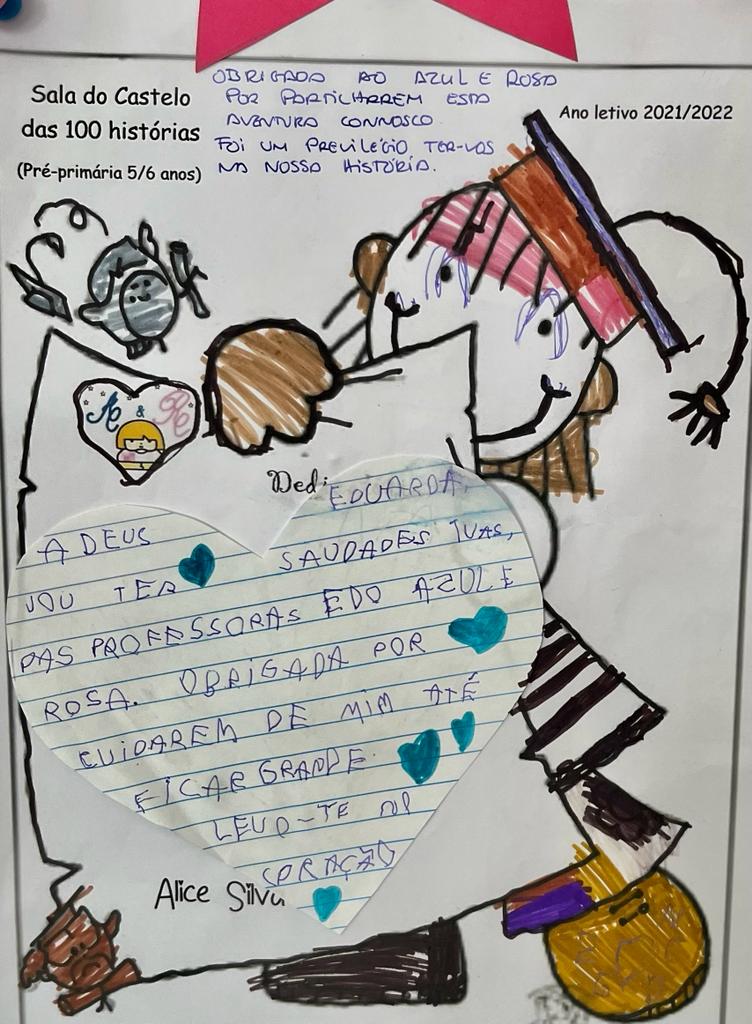 OBRIGADA AO AZUL E ROSA
POR PARTILHAREM ESTA
AVENTURA CONNOSCO.
FOI UM PREVILÉGIO TER-VOS
NA NOSSA HISTÓRIA.
Sala do Castelo
das 100 histórias
(Pré-primária 5/6 anos)
Ano letivo 2021/2022
A & R
Dedi
EDUARDA,
A DEUS
VOU TER SAUDADES TUAS,
DAS PROFESSORAS E DO AZUL E
ROSA. OBRIGADA POR
CUIDAREM DE MIM ATÉ
FICAR GRANDE.
LEVO-TE NO
CORAÇÃO
Alice Silva